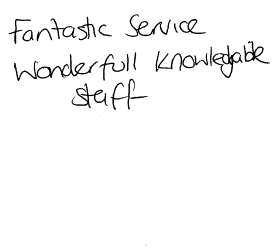 Fantastic Service
Wonderfull Knowledgable
Staff